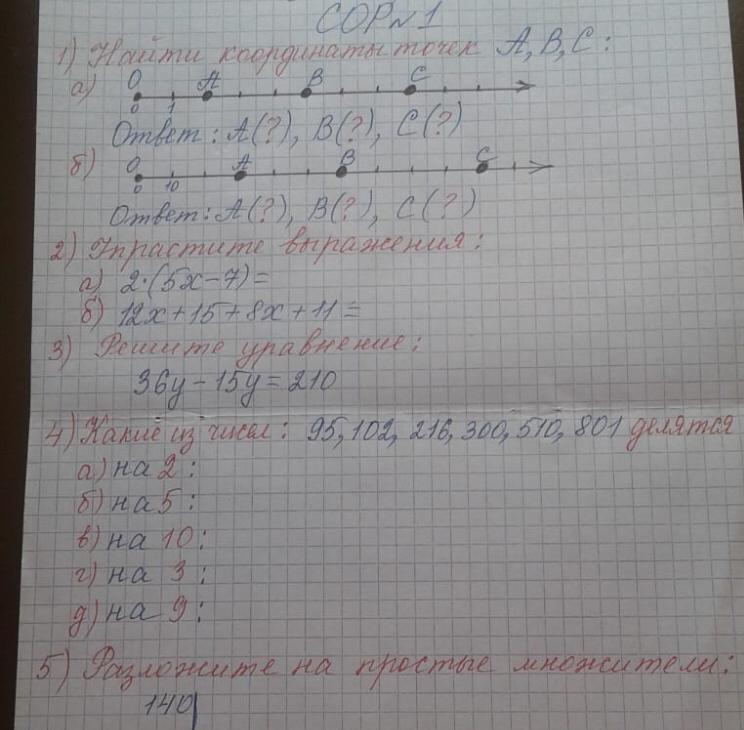 СОР№1
1) Найти координаты точек А, В, С:
а) О А В С
0 1
Ответ: А(?), В(?), С(?)
б) О А В С
0 10
Ответ: А(?), В(?), С(?)
2) Упрастите выражения:
а) 2·(5х-7)=
б) 12х+15+8х+11=
3) Решите уравнение:
36у-15у=210
4) Какие из чисел: 95, 102, 216, 300, 510, 801 делятся
а) на 2:
б) на 5:
в) на 10:
г) на 3:
д) на 9:
5) Разложите на простые множители:
140|